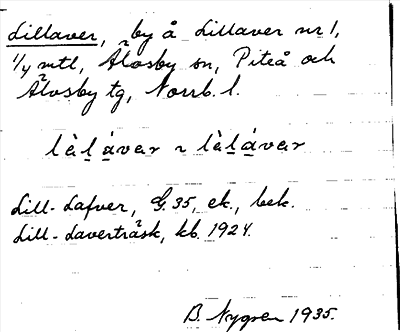 Lillaver, by å Lillaver nr 1,
1/4 mtl, Älvsby sn, Piteå och
Älvsby tg, Norrb. l.
lèl̠á̠var ~ lèl̠á̠var
Lill-Lafver, G. 35, ek., bek.
Lill-Laverträsk, kb. 1924.
B. Nygren 1935.